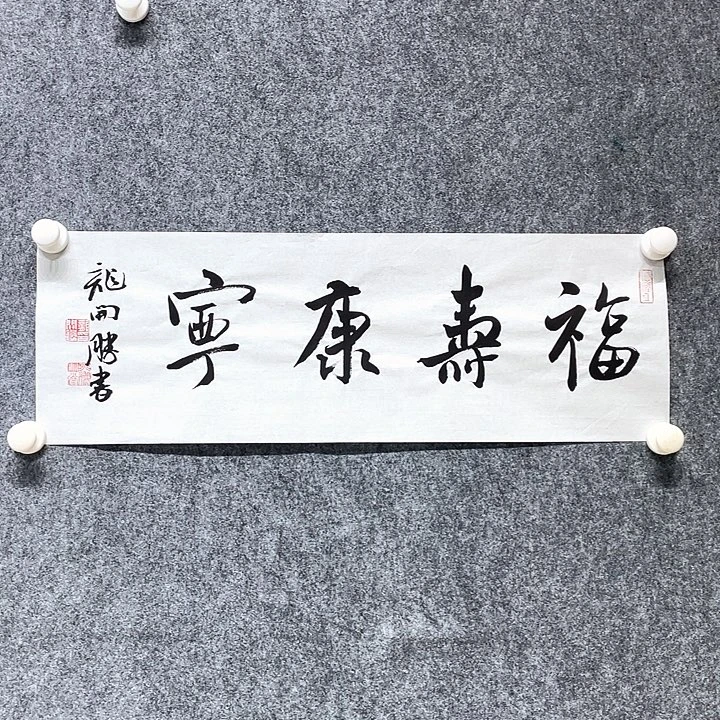 福壽康寧
龍開勝書